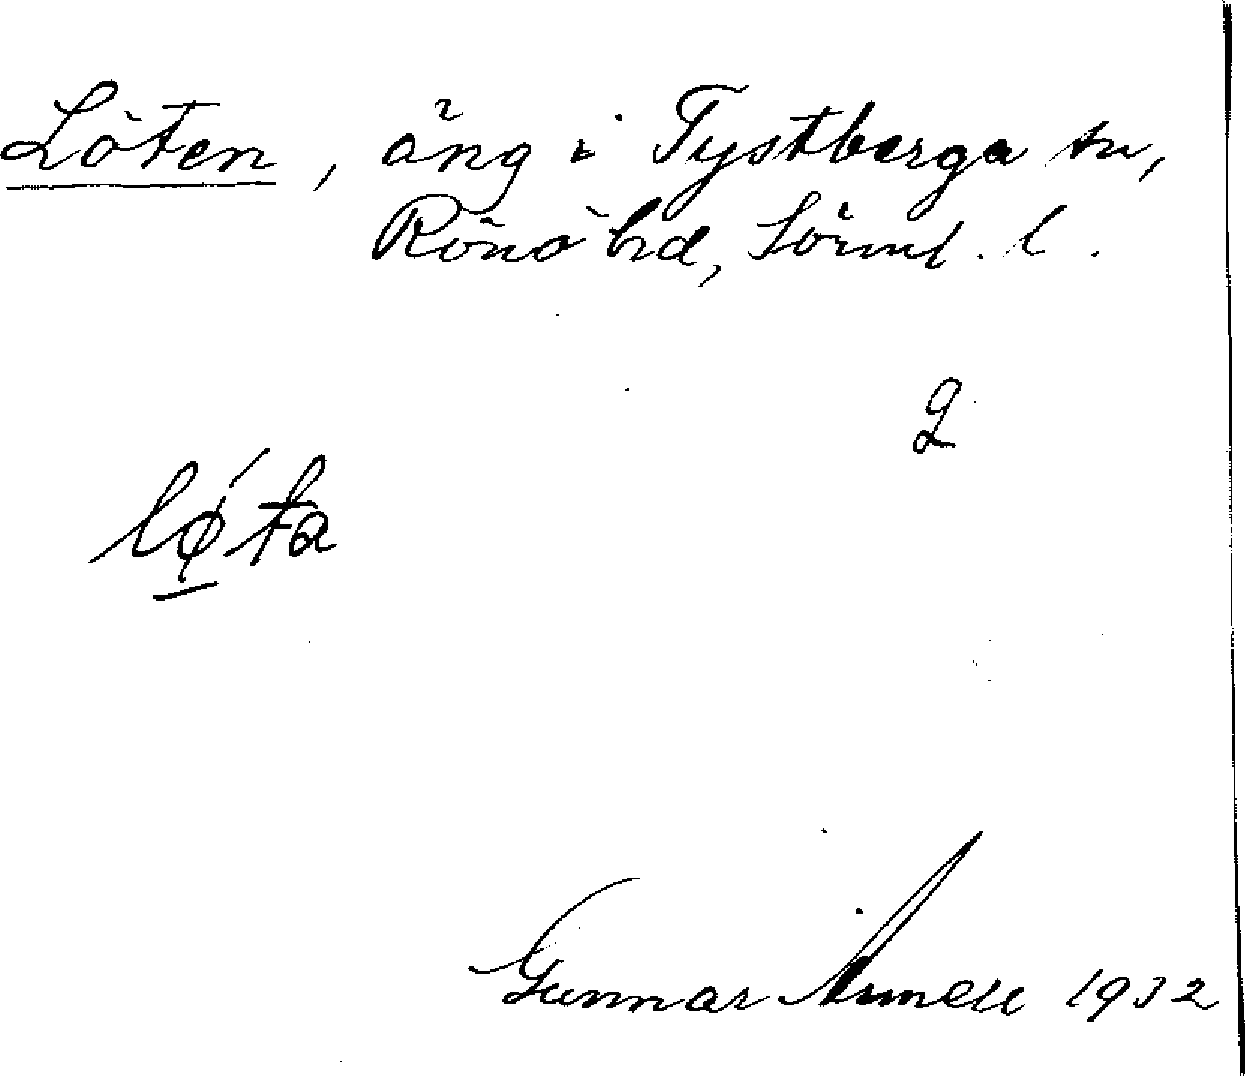 Löten, äng i Tystberga sn,
Rönö hd, Sörml. l.
2
lǿ̱ta
Gunnar Arnell 1932